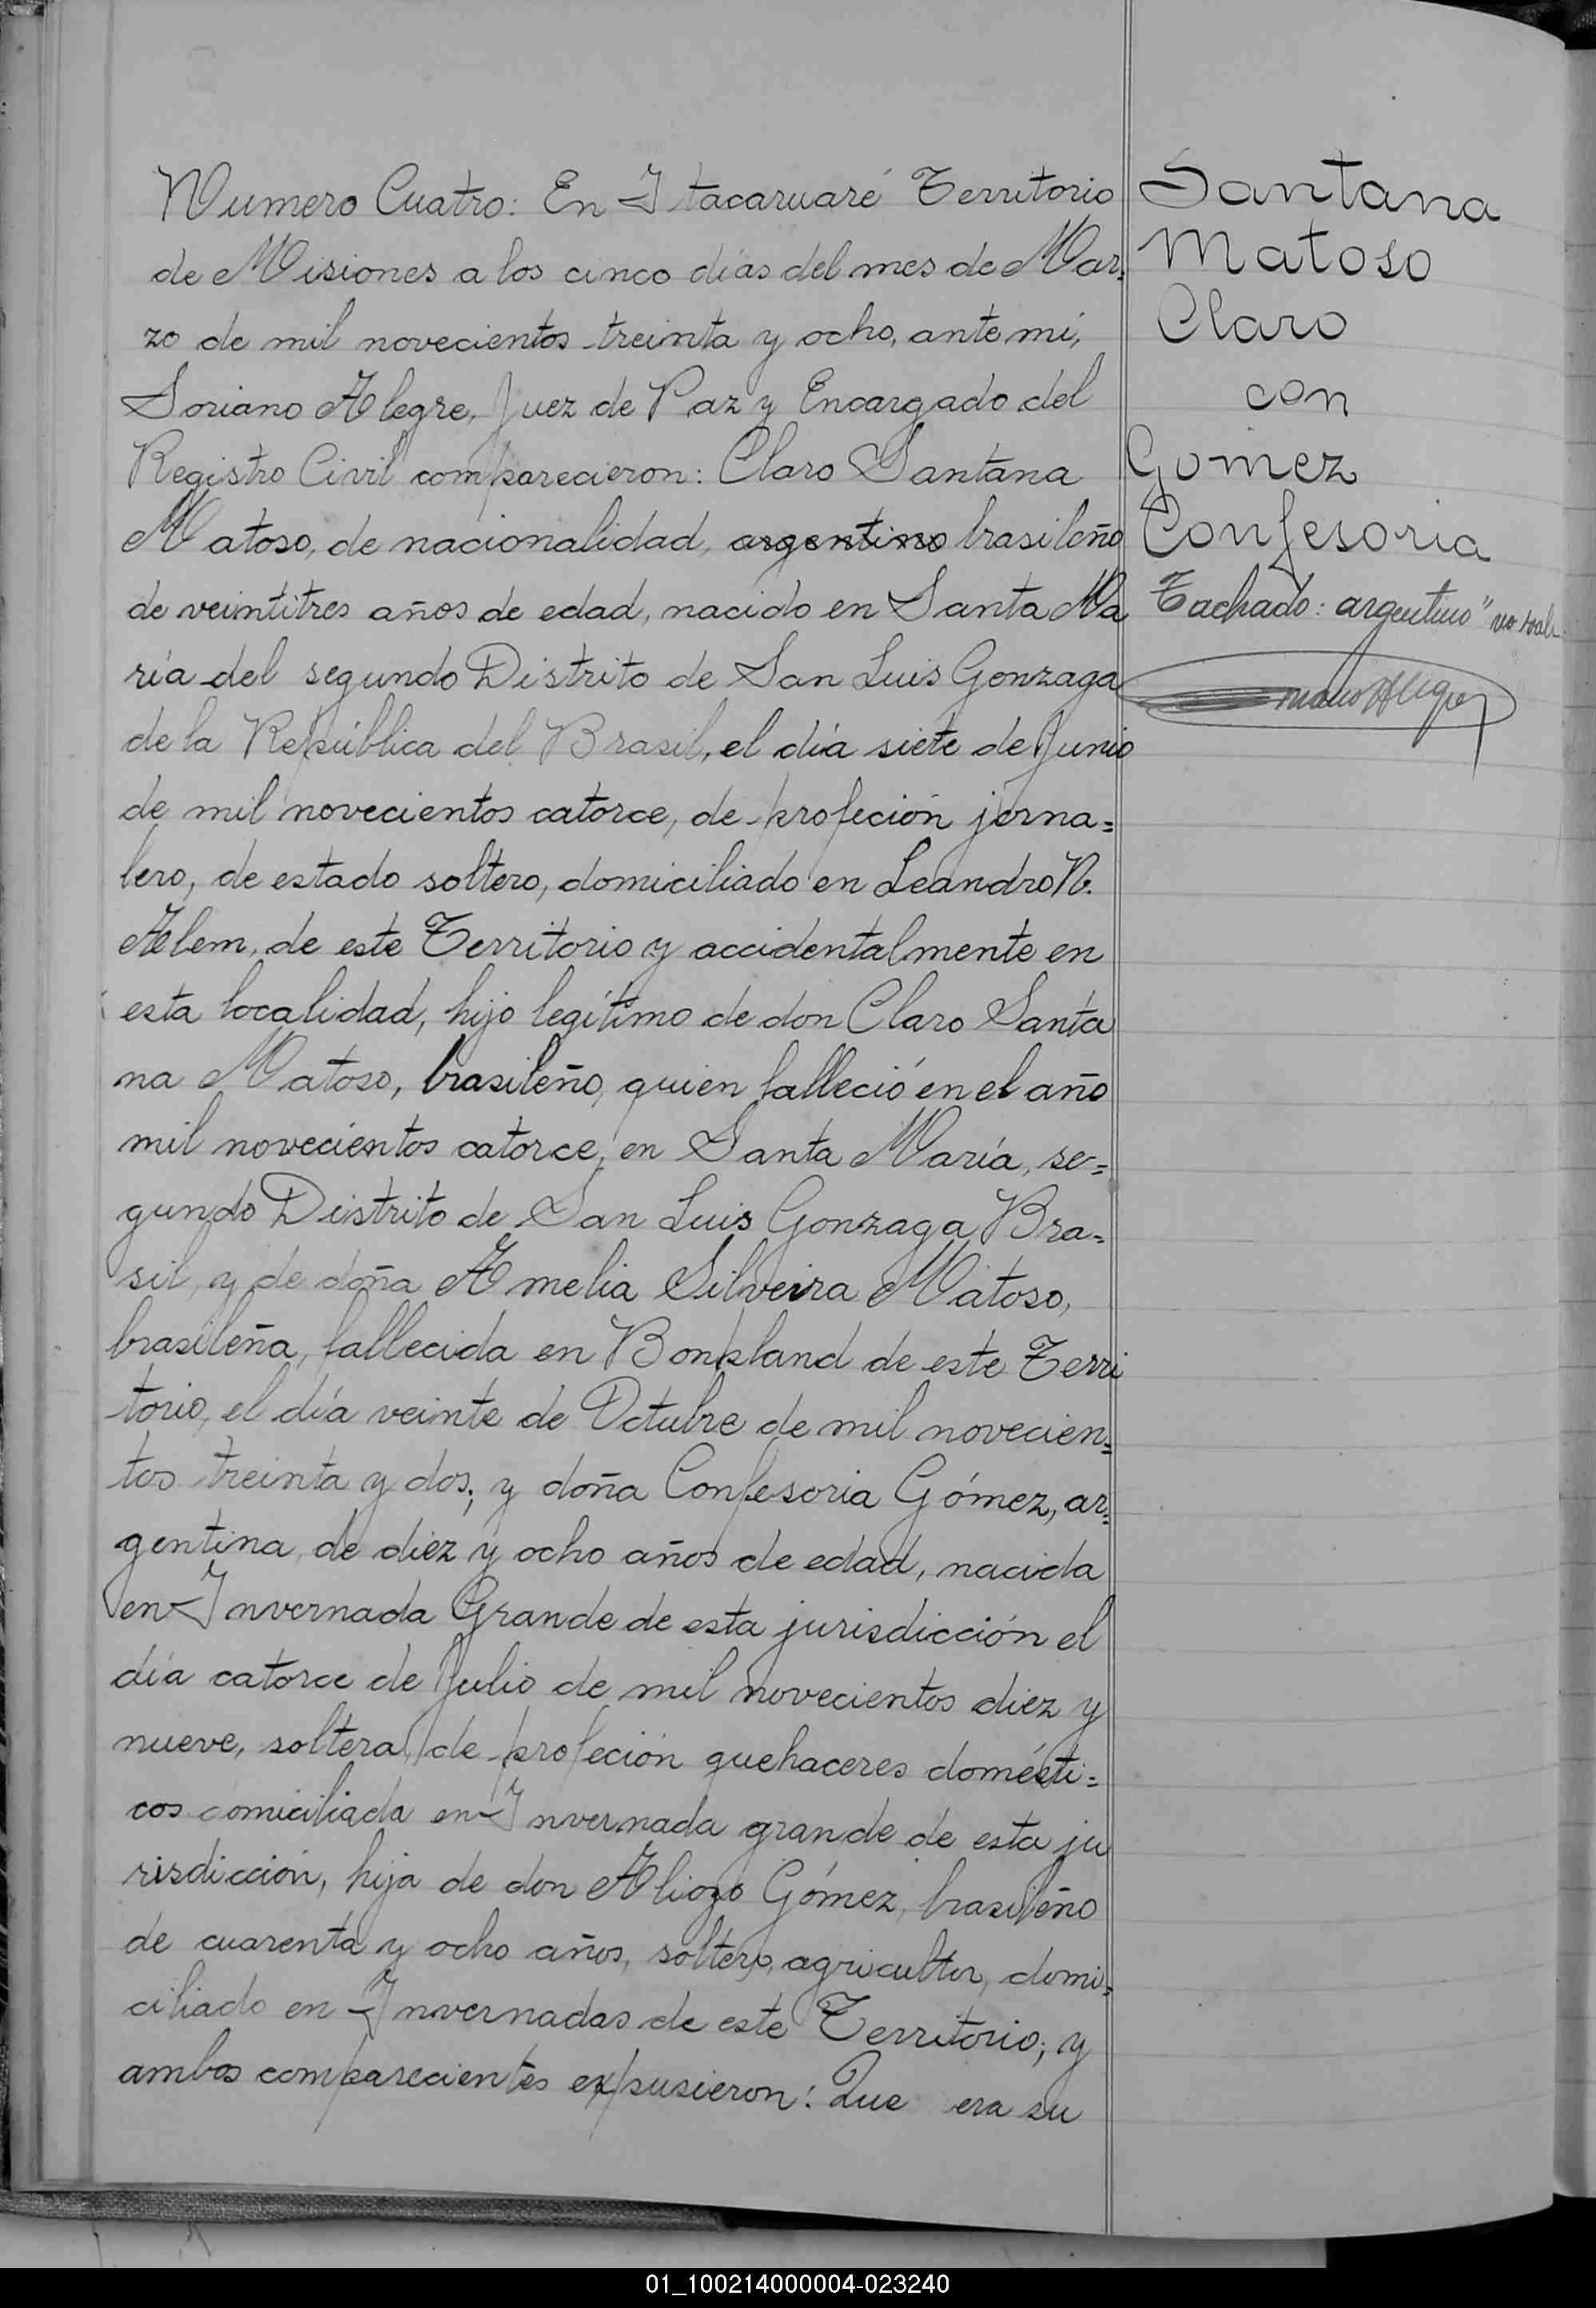 Numero Cuatro: En Itacaruaré Territorio
de Misiones a los cinco días del mes de Mar=
zo de mil novecientos treinta y ocho, ante mí,
Soriano Alegre, Juez de Paz y Encargado del
Registro Civil comparecieron: Claro Santana
Matoso, de nacionalidad, argentino brasileño
de veintitres años de edad, nacido en Santa Ma
ría del segundo Distrito de San Luis Gonzaga
de la República del Brasil, el día siete de Junio
de mil novecientos catorce, de profeción jorna=
lero, de estado soltero, domiciliado en Leandro N.
Alem, de este Territorio y accidentalmente en
esta localidad, hijo legítimo de don Claro Santa
na Matoso, brasileño, quien falleció en el año
mil novecientos catorce, en Santa María, se=
gundo Distrito de San Luis Gonzaga Bra=
sil, y de doña Amelia Silveira Matoso,
brasileña, fallecida en Bonpland de este Terri
torio, el día veinte de Octubre de mil novecien=
tos treinta y dos; y doña Confesoria Gómez, ar=
gentina, de diez y ocho años de edad, nacida
en Invernada Grande de esta jurisdicción el
día catorce de Julio de mil novecientos diez y
nueve, soltera, de profeción quehaceres domésti=
cos domiciliada en Invernada grande de esta ju
risdicción, hija de don Aliozo Gómez, brasileño
de cuarenta y ocho años, soltero, agricultor, domi=
ciliado en Invernadas de este Territorio; y
ambos comparecientes expusieron: Que era su
Santana
Matoso
Claro
con
Gomez
Confesoria
Tachado: argentino" no vale
01_100214000004-023240